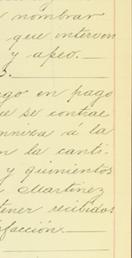 nombrar
que interven
y aseo.
go en pago
e se contrae
nneva a la
n la canti
y quinientos
Martinez
tener recibidos
facción.